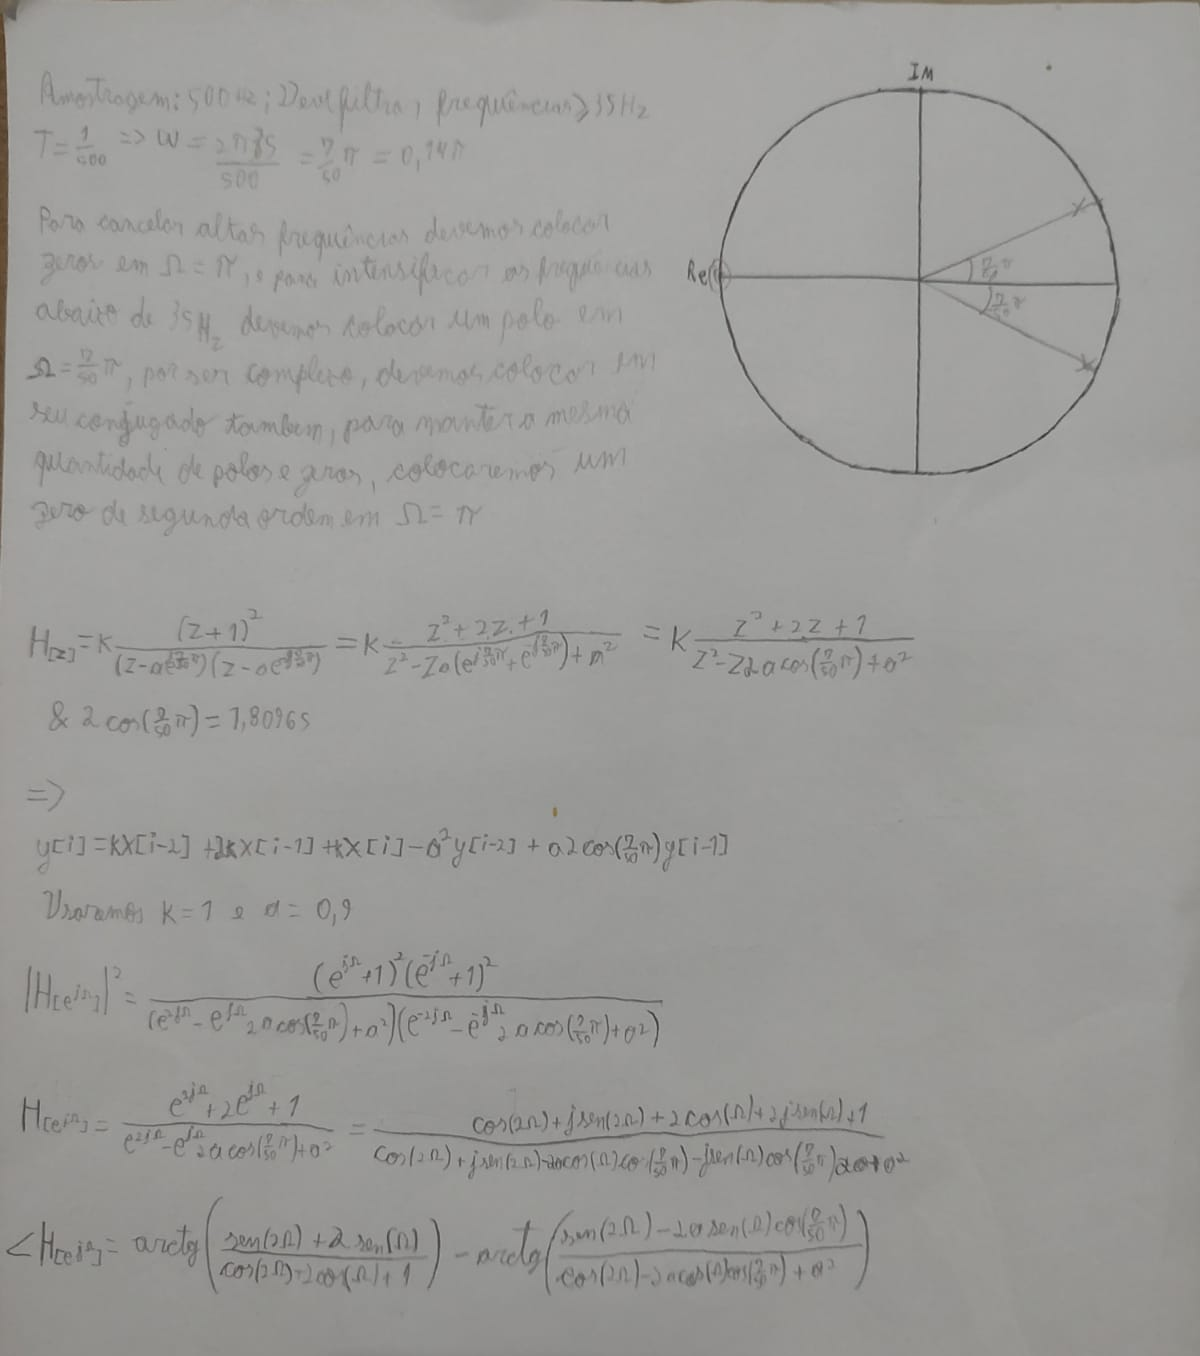 Amostragem: 500Hz; Deve filtrar frequências ≥ 35Hz
IM
T = 1/500 => W = 2π35/500 = 7/50 π = 0,14π
Para cancelar altas frequências devemos colocar
zeros em Ω = π, e para intensificar as frequências
Re
7/50 π
7/50 π
abaixo de 35Hz devemos colocar um polo em
Ω = 7/50 π, por ser complexo, devemos colocar em
seu conjugado tambem, para manter a mesma
quantidade de polos e zeros, colocaremos um
zero de segunda ordem em Ω = π
H[z] = K (z+1)² / (z-ae^(j7/50π))(z-ae^(-j7/50π)) = K z²+2z+1 / z²-za(e^(j7/50π)+e^(-j7/50π))+a² = K z²+2z+1 / z²-z2a cos(7/50 π)+a²
& 2cos(7/50 π) = 1,80965
=>
y[i] = KX[i-2] + 2KX[i-1] + KX[i] - a²y[i-2] + a2cos(7/50 π)y[i-1]
Usaremos K = 1 e a = 0,9
|H[e^(jΩ)]|² = (e^(jΩ)+1)²(e^(-jΩ)+1)² / (e^(2jΩ) - e^(jΩ)2a cos(7/50 π)+a²)(e^(-2jΩ) - e^(-jΩ)2a cos(7/50 π)+a²)
H[e^(jΩ)] = e^(2jΩ)+2e^(jΩ)+1 / e^(2jΩ)-e^(jΩ)2a cos(7/50 π)+a² = cos(2Ω)+jsen(2Ω)+2cos(Ω)+2jsen(Ω)+1 / cos(2Ω)+jsen(2Ω)-2acos(Ω)cos(7/50 π)-jsen(Ω)cos(7/50 π)2a+a²
∠H[e^(jΩ)] = arctg(sen(2Ω)+2sen(Ω) / cos(2Ω)+2cos(Ω)+1) - arctg(sen(2Ω)-2a sen(Ω)cos(7/50 π) / cos(2Ω)-2acos(Ω)cos(7/50 π)+a²)